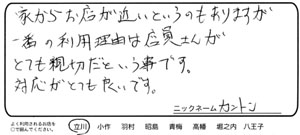 家からお店が近いというのもありますが
一番の利用理由は店員さんが
とても親切だという事です。
対応がとても良いです。
ニックネーム カントン
よく利用されるお店を
○で囲んでください。
立川 小作 羽村 昭島 青梅 高幡 堀之内 八王子